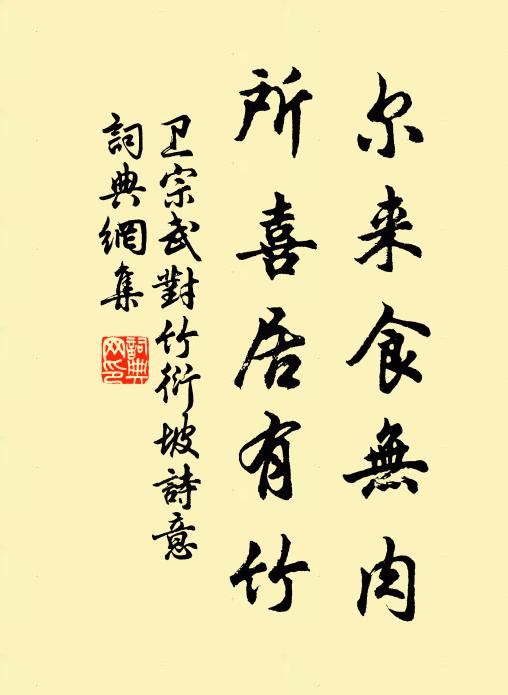 尔来食無肉
所喜居有竹
卫宗武對竹衍坡詩意
詞典網集
詞典网印